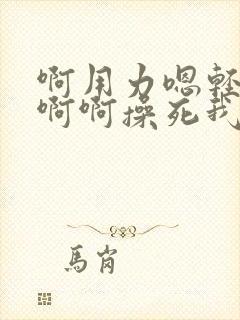 啊用力嗯轻
啊啊操死我
馬肖